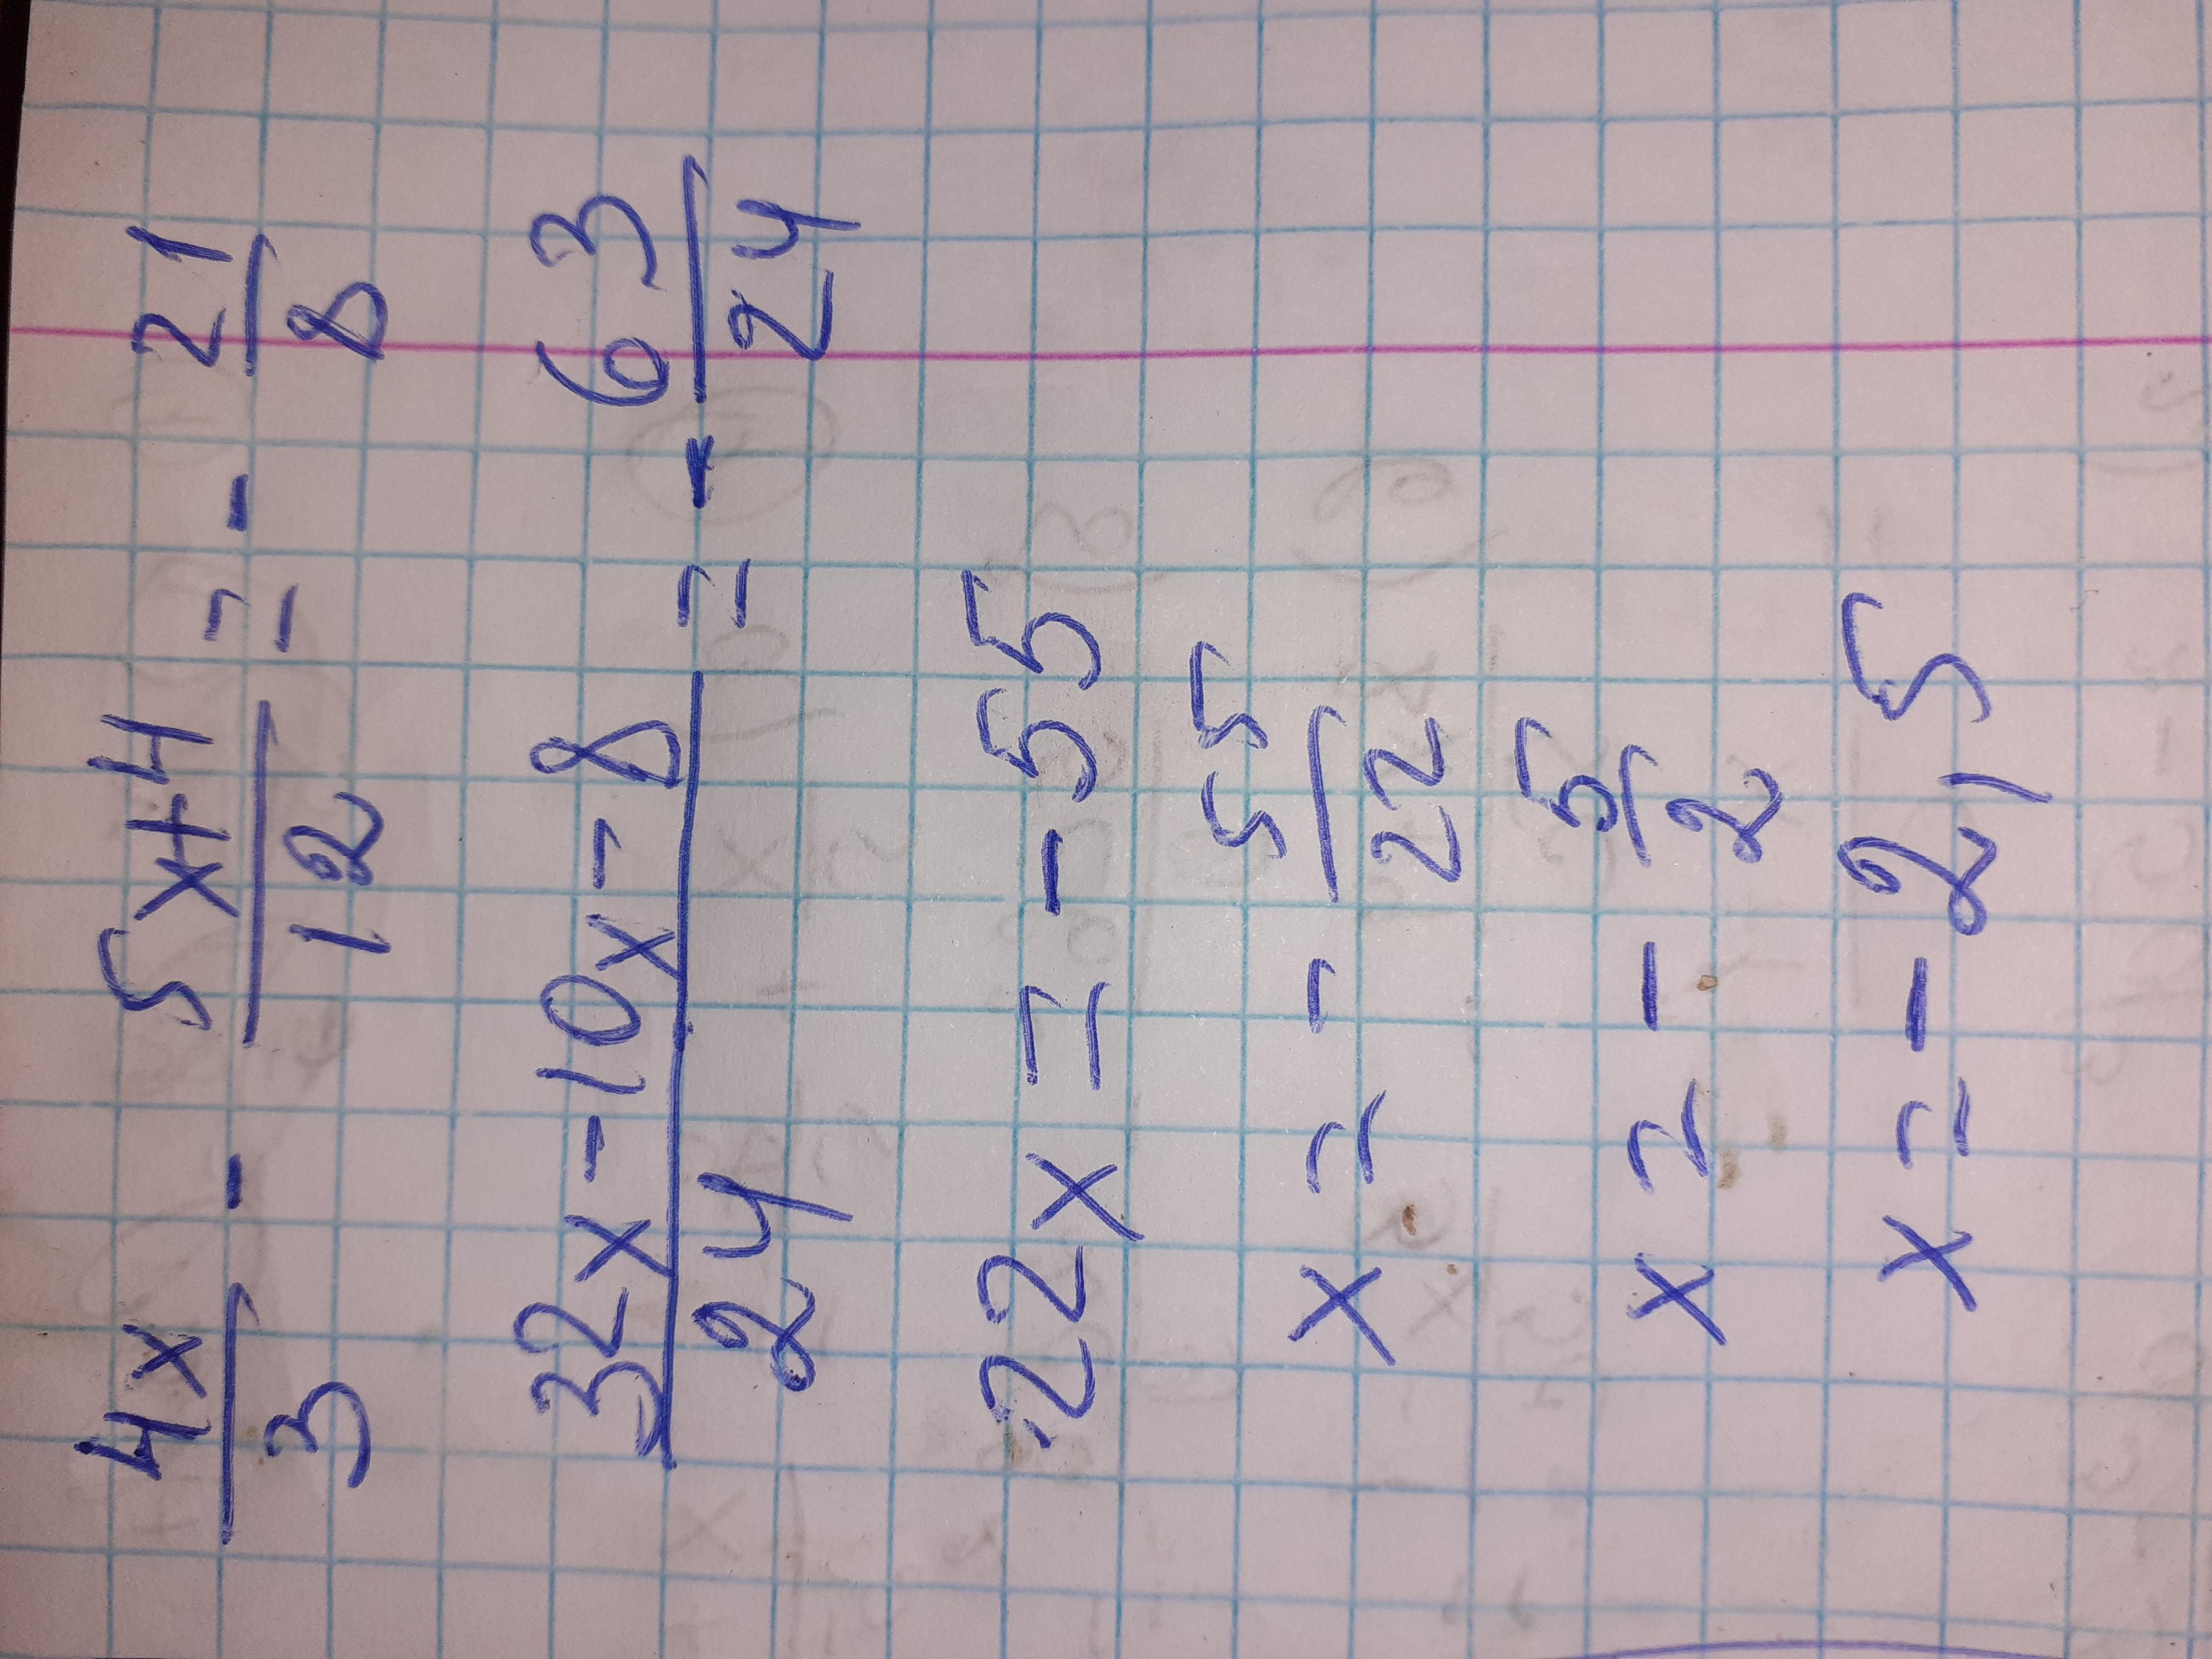 4x/3 - 5x+4/12 = - 21/8
32x-10x-8/24 = - 63/24
22x = -55
x = - 55/22
x = - 5/2
x = -2,5